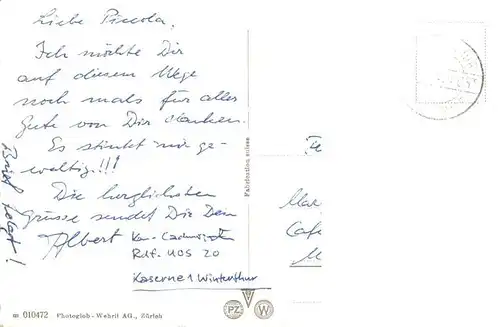 Liebe Piccola,
Ich möchte Dir
auf diesem Wege
noch mals für alles
Gute von Dir danken.
Es stinkt mir ge-
waltig!!!
Die herzlichsten
Grüsse sendet Dir Dein
Albert
Rdf. MOS 20
Kaserne 1 Winterthur
Brief folgt!
Fabrication suisse
Mar
Cafe
010472 Photoglob-Wehrli AG., Zürich
PZ W